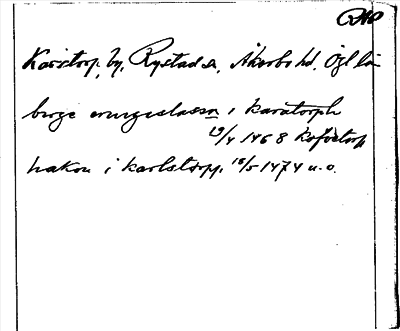 DAO
Karstorp, by, Rystad sn, Åkerbo hd, Ögl län
birge svngeslassn i karatorph
29/4 1468 Kofvetorp
hakon i karlstorpp, 18/5 1474 u.o.